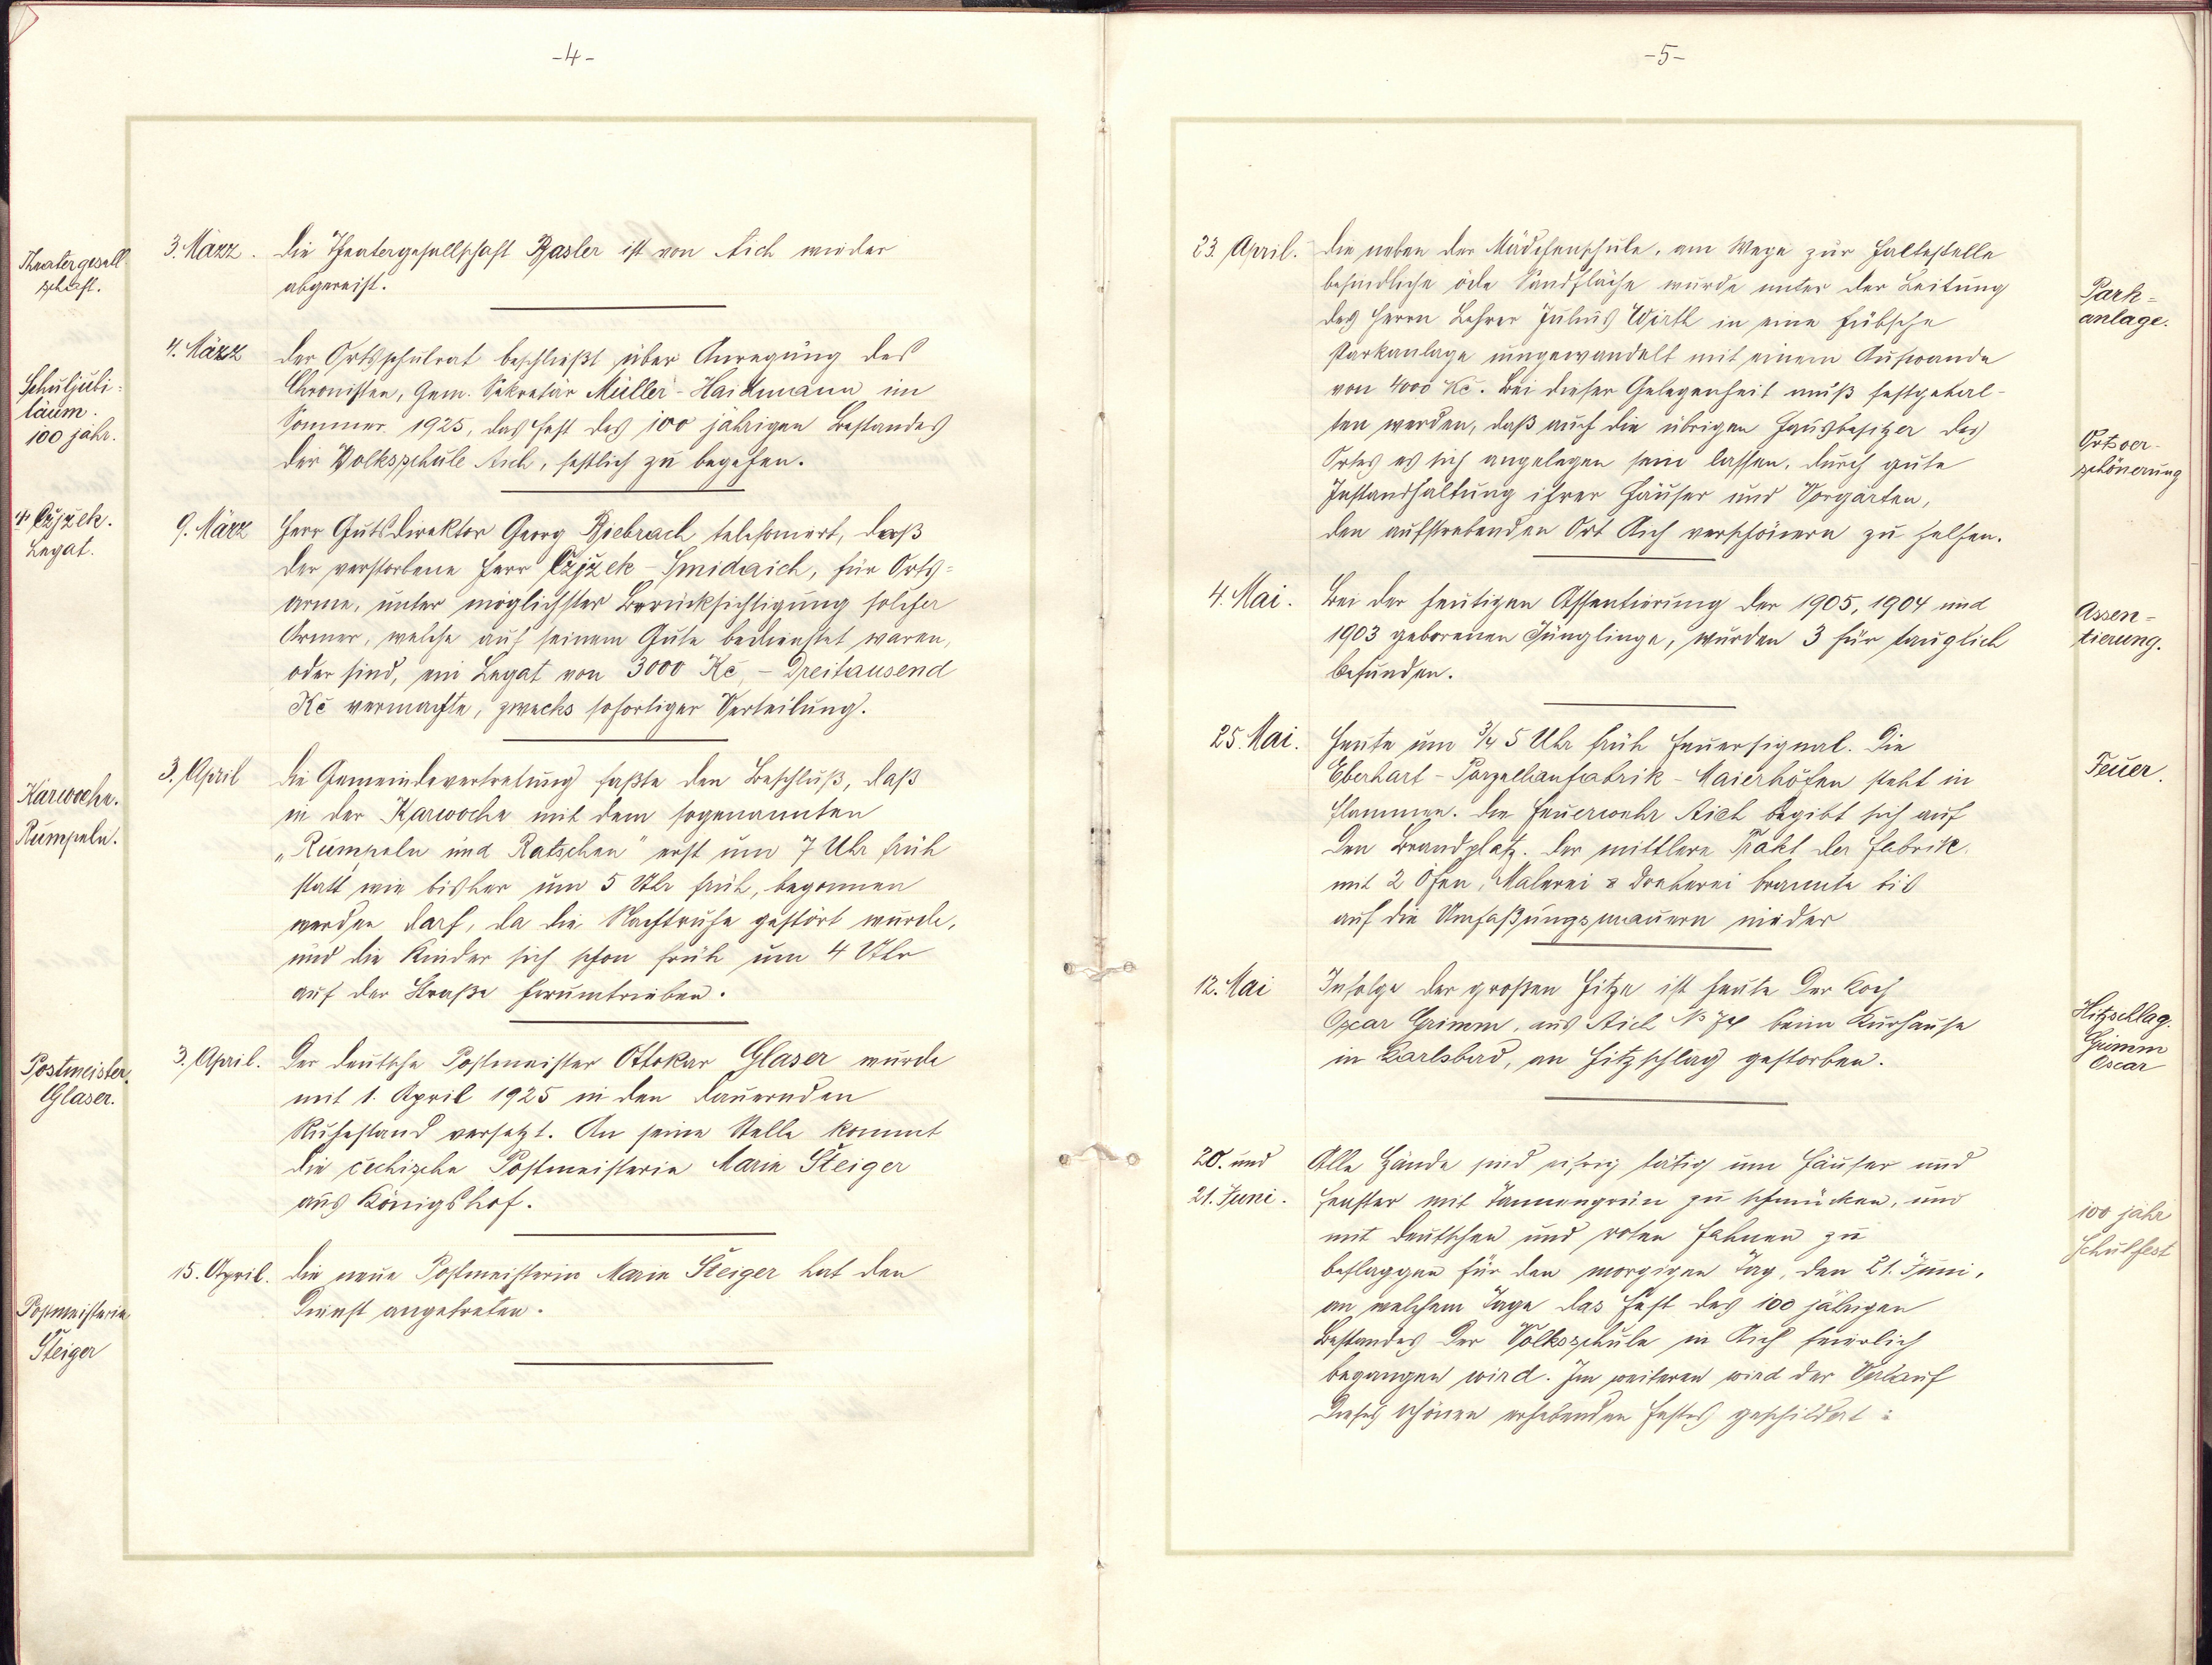 -4-
Theatergesell-
schaft.
3. März. Die Theatergesellschaft Basler ist von Aich wieder
abgereist.
Schuljubi-
läum.
100 jähr.
4. März Der Ortsschulrat beschließt über Anregung des
Chronisten, Gem. Sekretär Müller-Haidmann im
Sommer 1925, das Fest des 100 jährigen Bestandes
der Volksschule Aich, festlich zu begehen.
Czjžek.
Legat.
9. März Herr Gutsdirektor Georg Biebrach telefoniert, daß
der verstorbene Herr Czjžek-Smidaich, für Orts-
arme, unter möglichster Berücksichtigung solcher
Armer, welche auf seinem Gute bedienstet waren,
oder sind, ein Legat von 3000 Kč, - Dreitausend
Kč vermachte, zwecks sofortiger Verteilung.
Karwoche.
Rumpeln.
3. April Die Gemeindevertretung faßte den Beschluß, daß
in der Karwoche mit dem sogenannten
„Rumpeln und Ratschen" erst um 7 Uhr früh
statt wie bisher um 5 Uhr früh, begonnen
werden darf, da die Nachtruhe gestört wurde,
und die Kinder sich schon früh um 4 Uhr
auf der Straße herumtrieben.
Postmeister
Glaser.
3. April. Der deutsche Postmeister Ottokar Glaser wurde
mit 1. April 1925 in den dauernden
Ruhestand versetzt. An seine Stelle kommt
die čechische Postmeisterin Marie Steiger
aus Königshof.
Postmeisterin
Steiger
15. April. Die neue Postmeisterin Marie Steiger hat den
Dienst angetreten.
-5-
23. April. Die neben der Mädchenschule, am Wege zur Haltestelle
befindliche öde Sandfläche wurde unter der Leitung
des Herrn Lehrer Julius Wirth in eine hübsche
Parkanlage umgewandelt mit einem Aufwande
von 4000 Kč. Bei dieser Gelegenheit muß festgehal-
ten werden, daß auch die übrigen Hausbesitzer des
Ortes es sich angelegen sein lassen, durch gute
Instandhaltung ihrer Häuser und Vorgärten,
den aufstrebenden Ort Aich verschönern zu helfen.
Park-
anlage.
Ortsver-
schönerung
4. Mai. Bei der heutigen Assentierung der 1905, 1904 und
1903 geborenen Jünglinge, wurden 3 für tauglich
befunden.
Assen-
tierung.
25. Mai. Heute um 3/4 5 Uhr früh Feuersignal. Die
Eberhart-Porzellanfabrik-Maierhöfen steht in
Flammen. Die Feuerwehr Aich begibt sich auf
den Brandplatz. Der mittlere Trakt der Fabrik
mit 2 Öfen, Malerei & Dreherei brannte bis
auf die Umfaßungsmauern nieder
Feuer.
12. Mai Infolge der großen Hitze ist heute der Koch
Oscar Grimm, aus Aich beim Kurhause
in Karlsbad, an Hitzschlag gestorben.
Hitzschlag.
Grimm
Oscar
20. und
21. Juni. Alle Hände sind eifrig tätig um Häuser und
Fenster mit Tannengrün zu schmücken, und
mit deutschen und roten Fahnen zu
beflaggen für den morgigen Tag, den 21. Juni,
an welchem Tage das Fest des 100 jährigen
Bestandes der Volksschule in Aich feierlich
begangen wird. Im weiteren wird der Verlauf
dieses schönen erhebenden Festes geschildert:
100 jähr
Schulfest